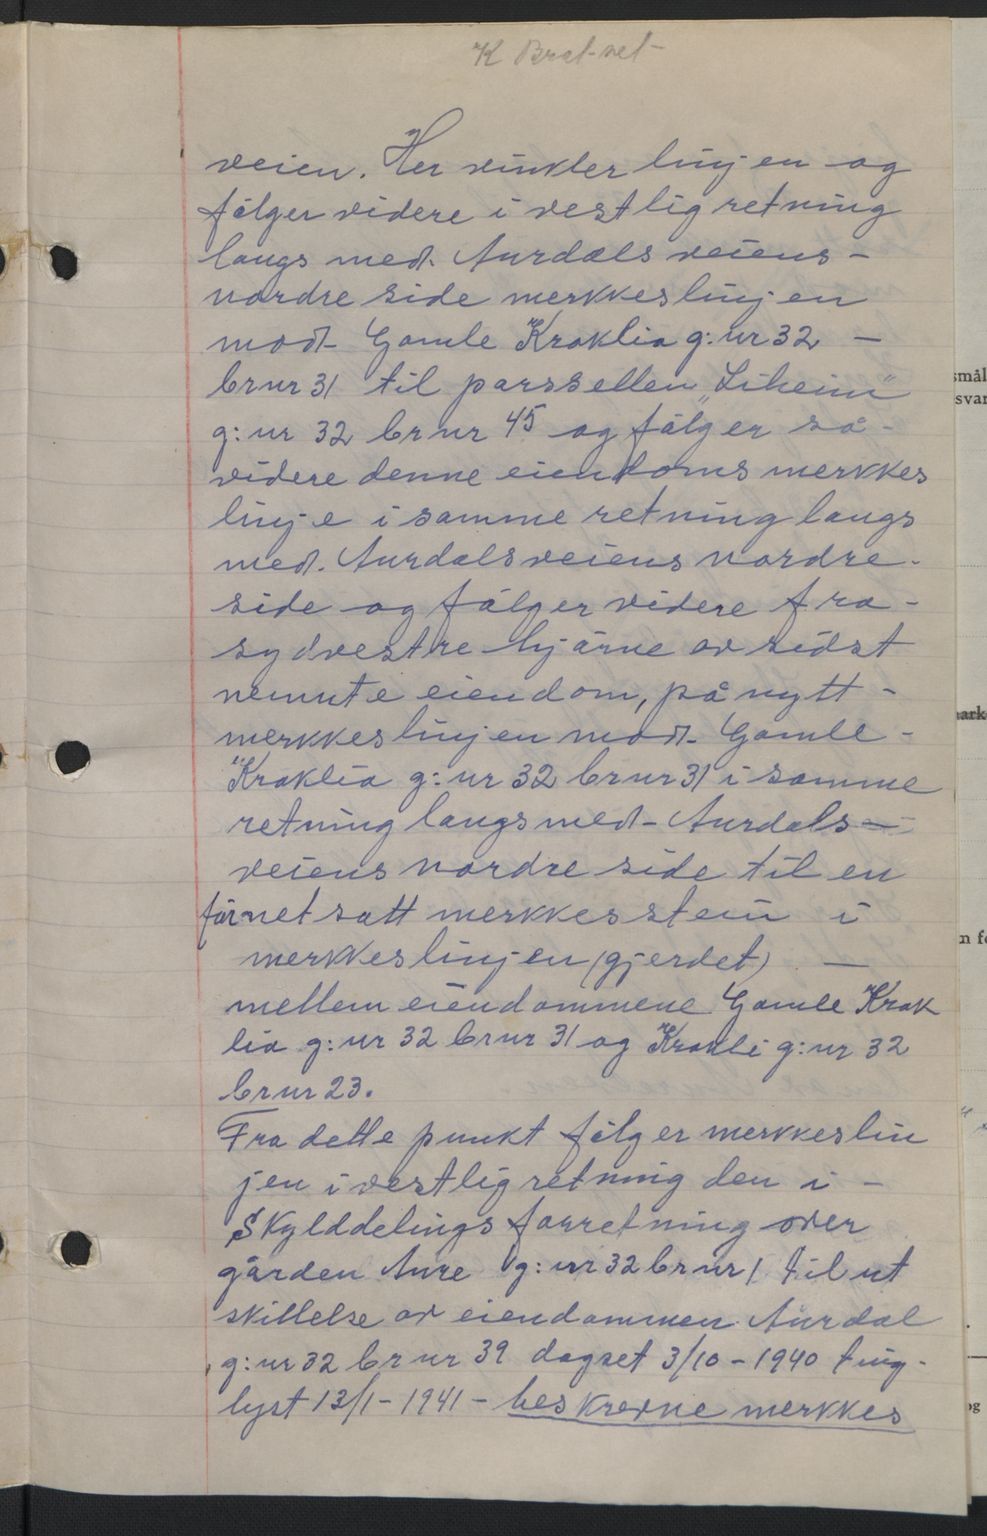 K Bratset
veien. Her vinkler linjen og
følger videre i vestlig retning
langs med. Aurdals veiens -
nordre side merkkeslinjen
mod- Gamle Kraklia g:nr 32 -
brnr 31 til parssellen „Liheim"
g:nr 32 brnr 45 og følger så -
videre denne eiendoms merkkes
linje i samme retning langs
med. Aurdalsveiens nordre -
side og følger videre fra -
sydvestre hjørne av sidst
nemnte eiendom, på nytt -
merkkeslinjen mod- Gamle -
Kraklia g:nr 32 brnr 31 i samme
retning langs med- Aurdals -
veiens nordre side til en
førnetsatt merkkesstein i
merkkeslinjen (gjerdet) -
mellem eiendommene Gamle Krak
lia g:nr 32 brnr 31 og Krakli g:nr 32
brnr 23.
Fra dette punkt følger merkkeslin
jen i vestlig retning den i -
Skylddelings forretning over
gården Aure g:nr 32 brnr 1 til ut
skillelse av eiendommen Aurdal
g:nr 32 brnr 39 dagset 3/10 - 1940 ting-
lyst 13/1 - 1941 - beskrevne merkkes
smål
svar
n fo
og